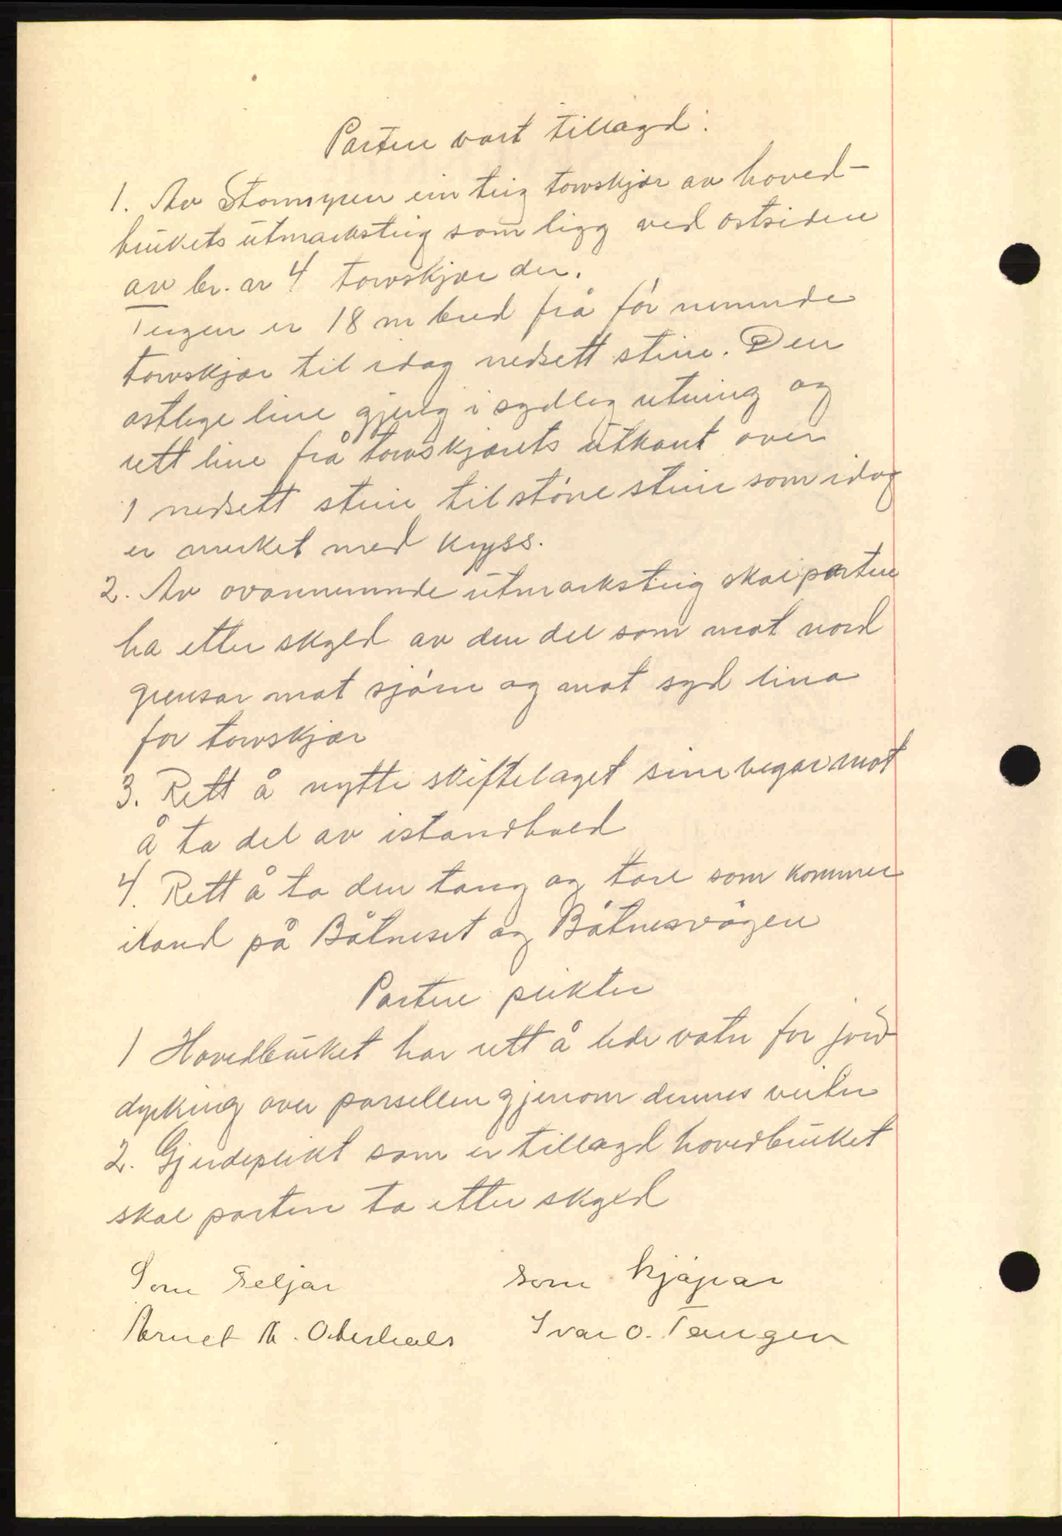 Parten vart tillagd:
1. Av Stormyren ein teig torvskjær av hoved-
brukets utmarksteig som ligg ved østsiden
av br. nr 4 torvskjær der.
Teigen er 18 m bred frå før nemnde
torvskjær til idag nedsett stein. Den
østlege line gjeng i sydleg retning og
rett line frå torvskjærets utkant over
1 nedsett stein til större stein som idag
er merket med kryss.
2. Av ovannemnde utmarksteig skal parten
ha etter skyld av den del som mot nord
grensar mot sjöen og mot syd lina
for torvskjær
3. Rett å nytte skiftelaget sine vegar mot
å ta del av istandhold
4. Rett å ta den tang og tare som kommer
iland på Båtneset og Båtnesvågen
Partens plikter
1 Hovedbruket har rett å lede vatn for jord
dyrking over parsellen gjenom dennes veiter
2. Gjerdeplikt som er tillagd hovedbruket
skal parten ta etter skyld
Som Seljar som kjöpar
A. Ivar O. Tangen